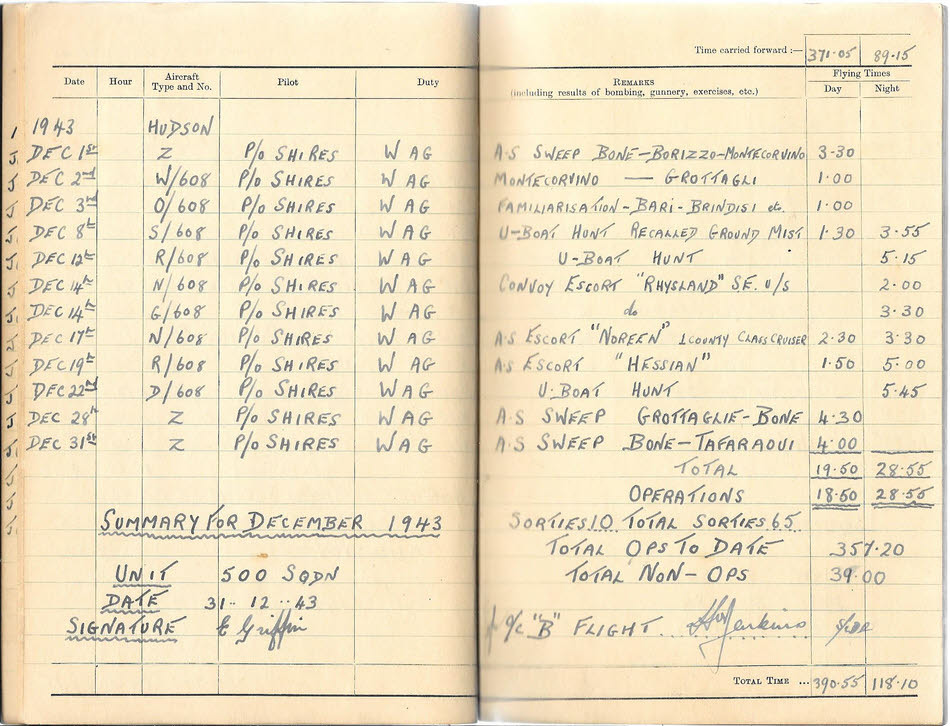 Time carried forward :— 371·05 89·15
Date Hour Aircraft Type and No. Pilot Duty REMARKS (including results of bombing, gunnery, exercises, etc.) Flying Times Day Night
1943 HUDSON
DEC 1st Z P/O SHIRES WAG A·S SWEEP BONE—BORIZZO—MONTECORVINO 3·30
DEC 2nd W/608 P/O SHIRES WAG MONTECORVINO — GROTTAGLI 1·00
DEC 3rd O/608 P/O SHIRES WAG FAMILIARISATION—BARI—BRINDISI etc. 1·00
DEC 8th S/608 P/O SHIRES WAG U-BOAT HUNT RECALLED GROUND MIST 1·30 3·55
DEC 12th R/608 P/O SHIRES WAG U-BOAT HUNT 5·15
DEC 14th N/608 P/O SHIRES WAG CONVOY ESCORT "RHYSLAND" S.E. U/S 2·00
DEC 14th G/608 P/O SHIRES WAG do 3·30
DEC 17th N/608 P/O SHIRES WAG A·S ESCORT "NOREEN" 1 COUNTY CLASS CRUISER 2·30 3·30
DEC 19th R/608 P/O SHIRES WAG A·S ESCORT "HESSIAN" 1·50 5·00
DEC 22nd D/608 P/O SHIRES WAG U-BOAT HUNT 5·45
DEC 28th Z P/O SHIRES WAG A·S SWEEP GROTTAGLIE—BONE 4·30
DEC 31st Z P/O SHIRES WAG A·S SWEEP BONE—TAFARAOUI 4·00
TOTAL 19·50 28·55
OPERATIONS 18·50 28·55
SUMMARY FOR DECEMBER 1943 SORTIES 10 TOTAL SORTIES 65
TOTAL OPS TO DATE 357·20
UNIT 500 SQDN TOTAL NON-OPS 39·00
DATE 31·12··43
SIGNATURE E Griffin O/C "B" FLIGHT Jenkins S/LDR
TOTAL TIME ... 390·55 118·10